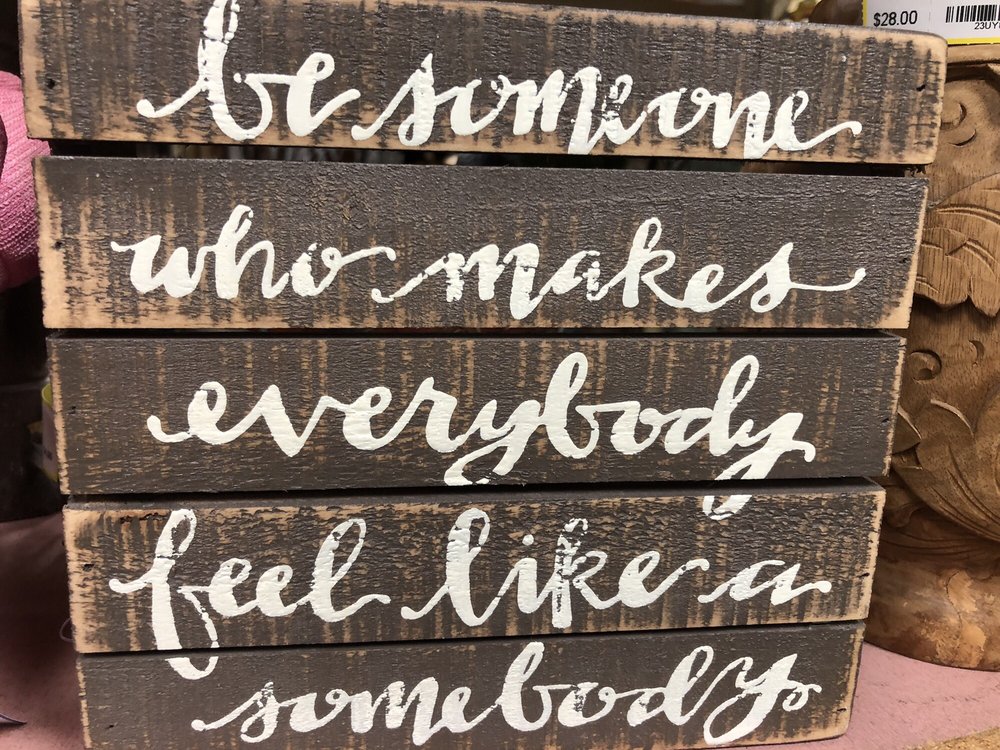 $28.00
be someone
who makes
everybody
feel like a
somebody